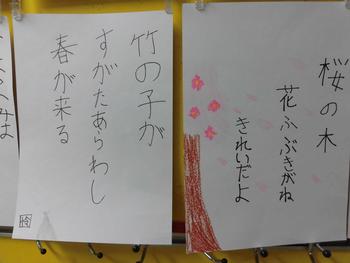 桜の木
花ふぶきがね
きれいだよ
竹の子が
すがたあらわし
春が来る